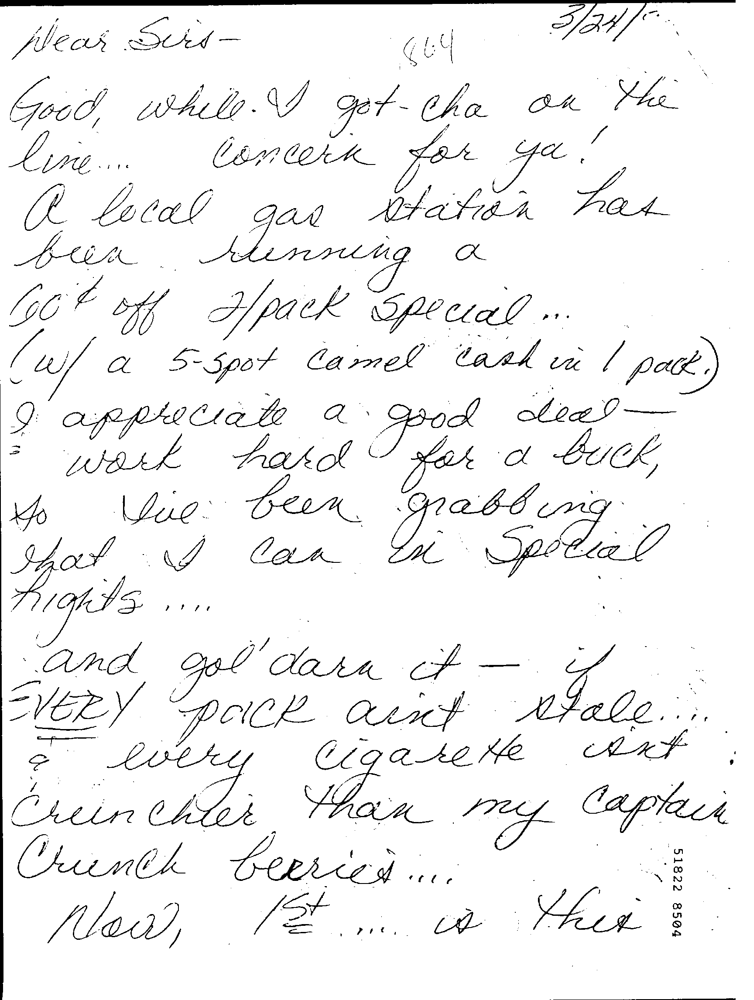 3/24/
Dear Sirs-
864
Good, while I got-cha on the
line.... concern for ya!
A local gas station has
been running a
60¢ off 2/pack special...
(w/ a 5-spot camel cash in 1 pack.)
I appreciate a good deal—
work hard for a buck,
so I've been grabbing
what I can in Special
Lights....
and gol'darn it — if
EVERY pack aint stale....
& every cigarette isnt
crunchier than my Captain
Crunch berries....
Now, 1st .... is this
51822 8504